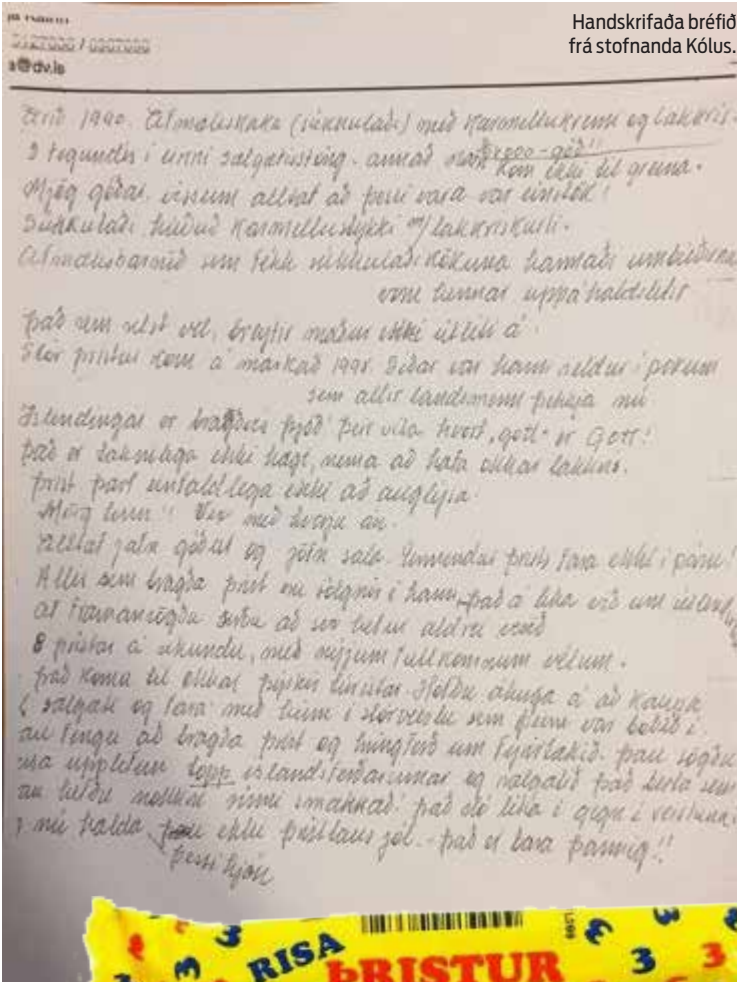 Handskrifaða bréfið
frá stofnanda Kólus.
@dv.is
Árið 1990. Afmæliskaka (súkkulaði) með karmellukremi og lakkrís.
3 tegundir í einni sælgætisstöng. annað nafn kom ekki til greina.
Mjög góðar, vissum alltaf að þessi vara var einstök!
Súkkulaði húðuð karmellustykki m/lakkrískurli.
Afmælisbarnið sem fékk súkkulaðikökuna hannaði umbúðirnar
voru hennar uppáhaldslitir
það sem selst vel, breytir maður ekki útliti á.
Stór þristur kom á markað 1998. Síðar var hann seldur í pokum
sem allir landsmenn þekkja nú
Íslendingar er bragðvís þjóð þeir vita hvort "gott" er Gott!
það er ekki hægt, nema að hafa okkar lakkrís.
þrist þarf einfaldlega ekki að auglýsa.
Mjög!! með hverju ári.
Alltaf jafn góðar og jöfn sala. þrists fara ekki í pásu!
Allir sem bragða þrist eru sólgnir í hann, það á líka við um
Af framansögðu að hefur aldrei verið
8 þristar á sekúndu, með nýjum fullkomnum vélum.
það koma til okkar þýskir túristar. Höfðu áhuga á að kaupa
sælgæti og fara með heim í stórveislu sem þeim var boðið í.
fengu að bragða þrist og hringferð um fyrirtækið. þau sögðu
upplifun topp íslandsferðarinnar og sælgætið það besta sem
hefðu nokkru sinni smakkað. það sló líka í gegn í veislunni.
nú halda ekki þristlaus jól. - það er bara þannig!!
þessi hjón
RISA
ÞRISTUR
3
3
3
3
3